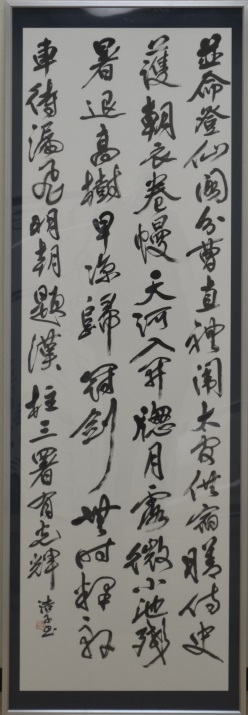 並命登仙閣分曹直禮闈大官供宿膳侍史
護朝衣卷幔天河入開牕月露微小池殘
暑退高樹早涼歸冠劍無時釋軒
車待漏飛明朝題漢柱三署有光輝